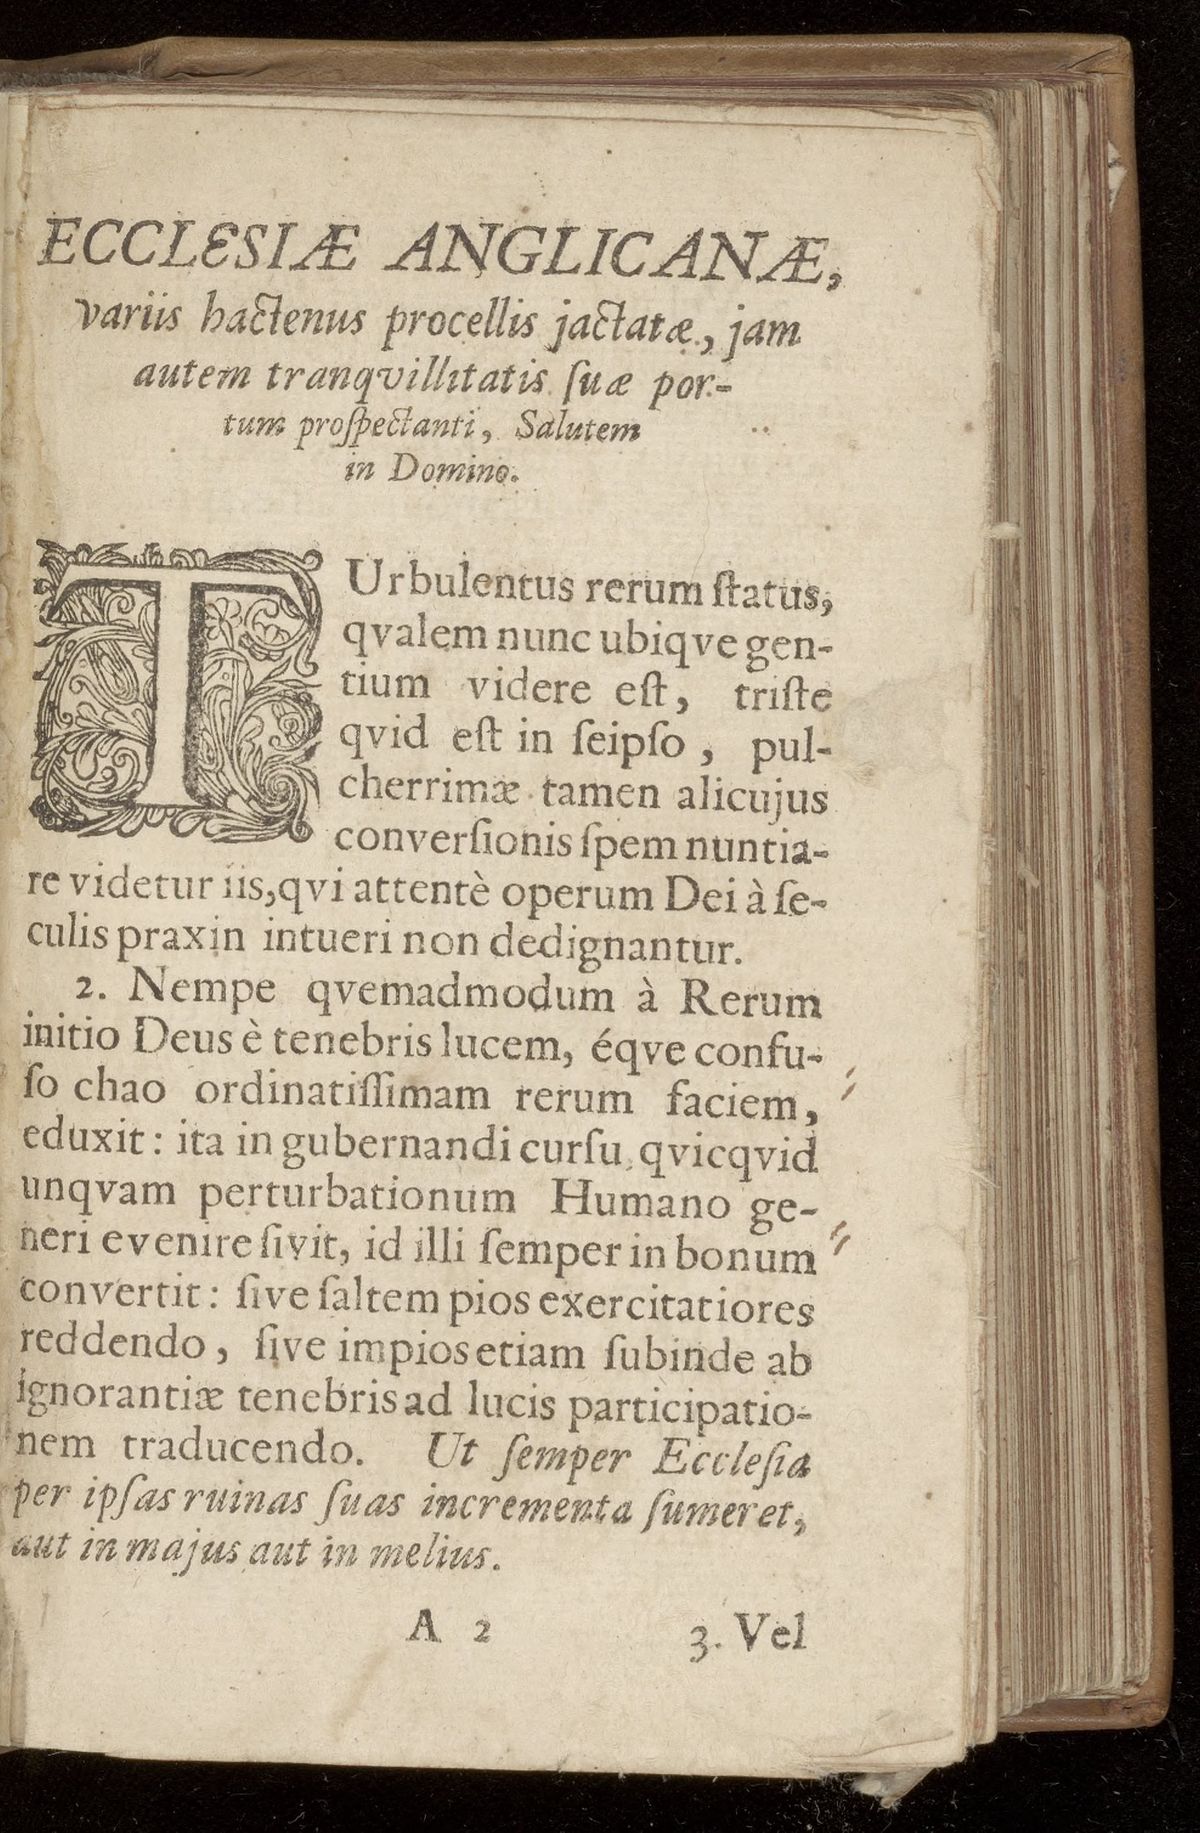 ECCLESIÆ ANGLICANÆ,
variis hactenus procellis jactatæ, jam
autem tranqvillitatis ſuæ por-
tum proſpectanti, Salutem
in Domino.
TUrbulentus rerum ſtatus,
qvalem nunc ubiqve gen-
tium videre eſt, triſte
qvid eſt in ſeipſo, pul-
cherrimæ tamen alicujus
converſionis ſpem nuntia-
re videtur iis, qvi attentè operum Dei à ſe-
culis praxin intueri non dedignantur.
2. Nempe qvemadmodum à Rerum
initio Deus è tenebris lucem, éqve confu-
ſo chao ordinatiſſimam rerum faciem,
eduxit: ita in gubernandi curſu qvicqvid
unqvam perturbationum Humano ge-
neri evenire ſivit, id illi ſemper in bonum
convertit: ſive ſaltem pios exercitatiores
reddendo, ſive impios etiam ſubinde ab
ignorantiæ tenebris ad lucis participatio-
nem traducendo. Ut ſemper Eccleſia
per ipſas ruinas ſuas incrementa ſumeret,
aut in majus aut in melius.
A 2 3. Vel